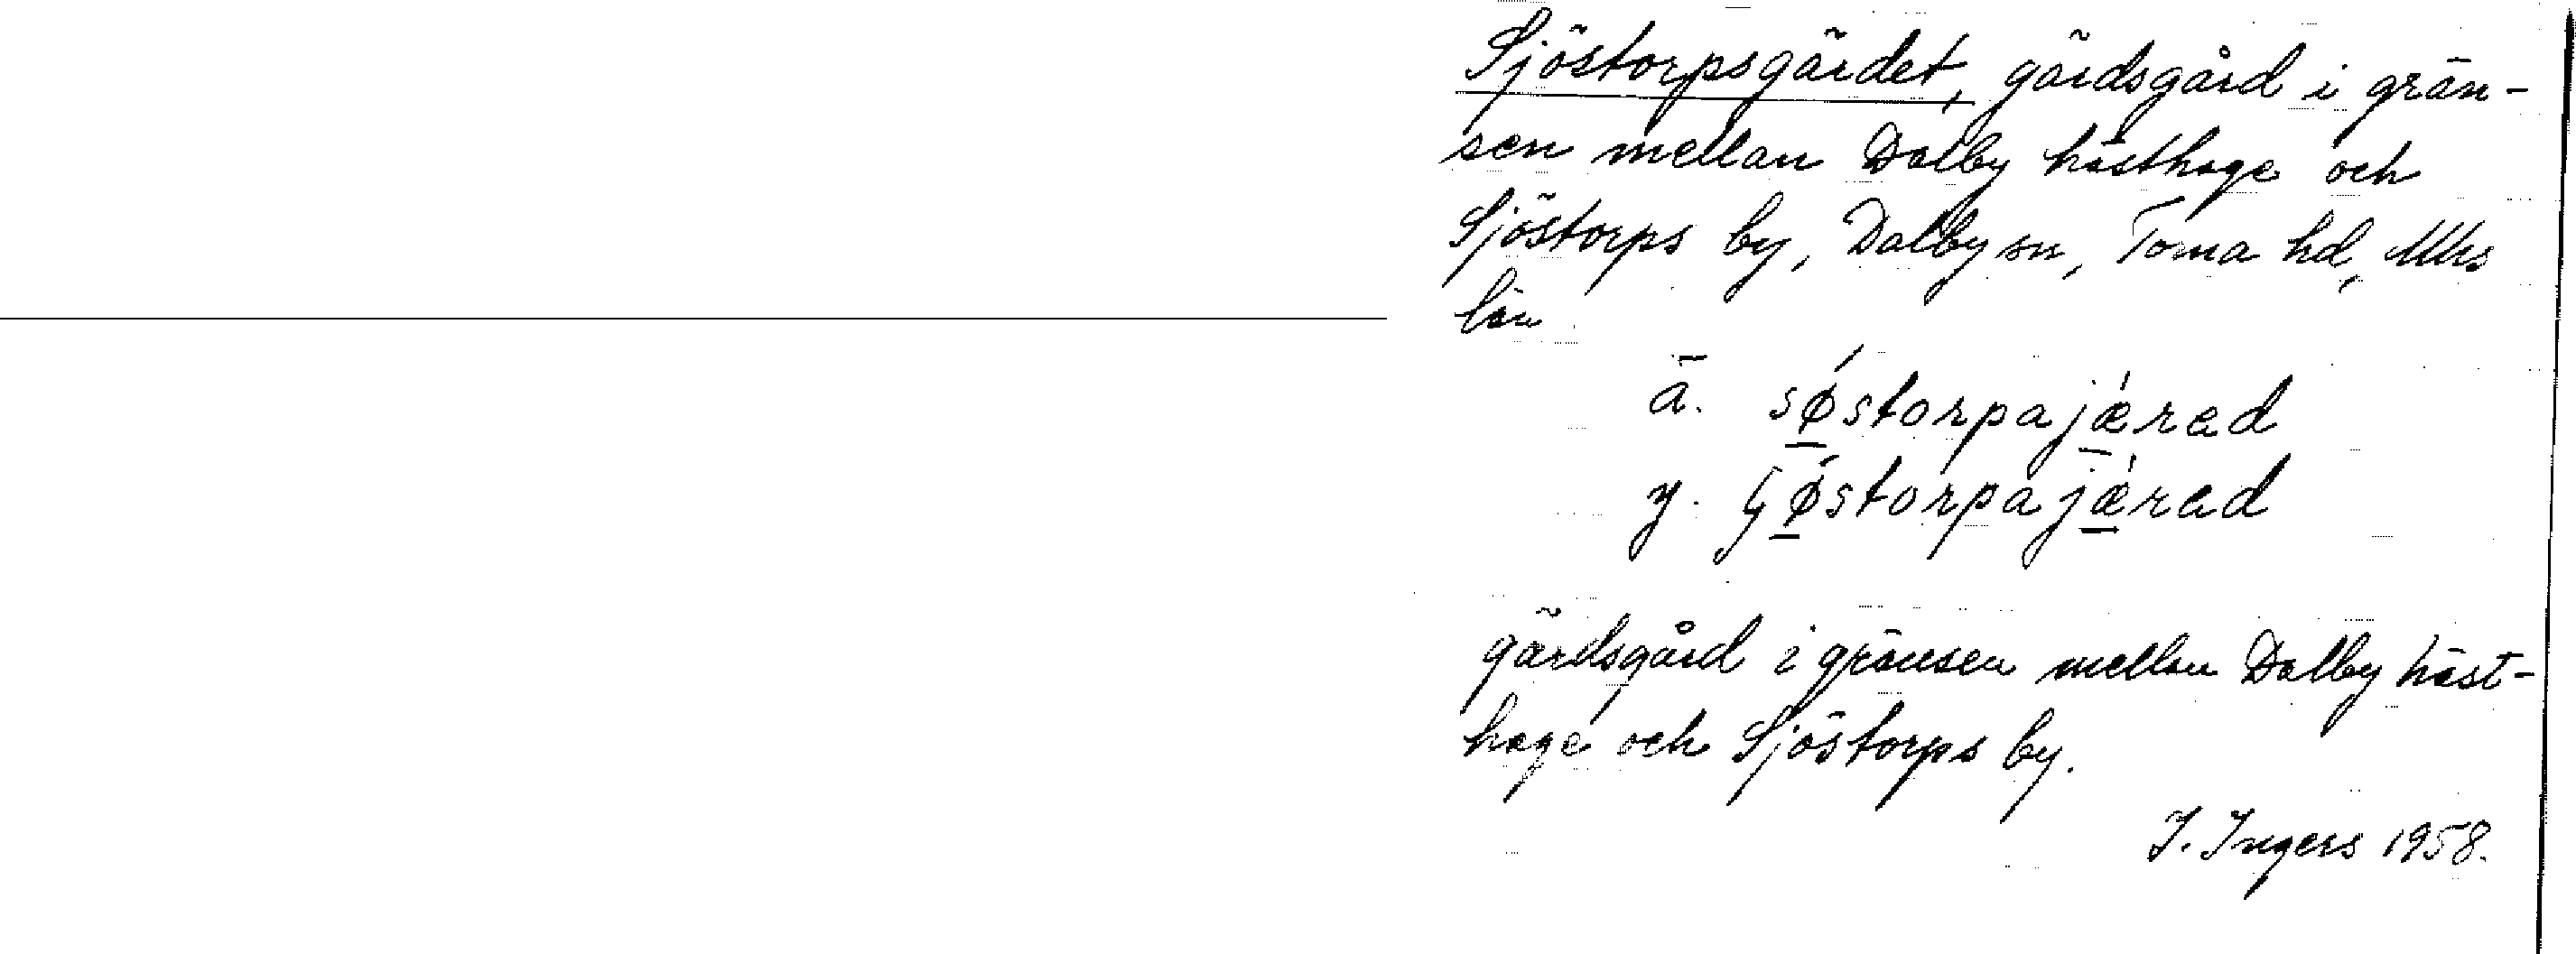 Sjöstorpsgärdet, gärdsgård i grän-
sen mellan Dalby hästhage och
Sjöstorps by, Dalby sn, Torna hd, Mhs
län
ä. sǿ̱storpajǽ̱rad
y. ꞔǿ̱storpajǽ̱rad
gärdsgård i gränsen mellan Dalby häst-
hage och Sjöstorps by.
I. Ingers 1958.